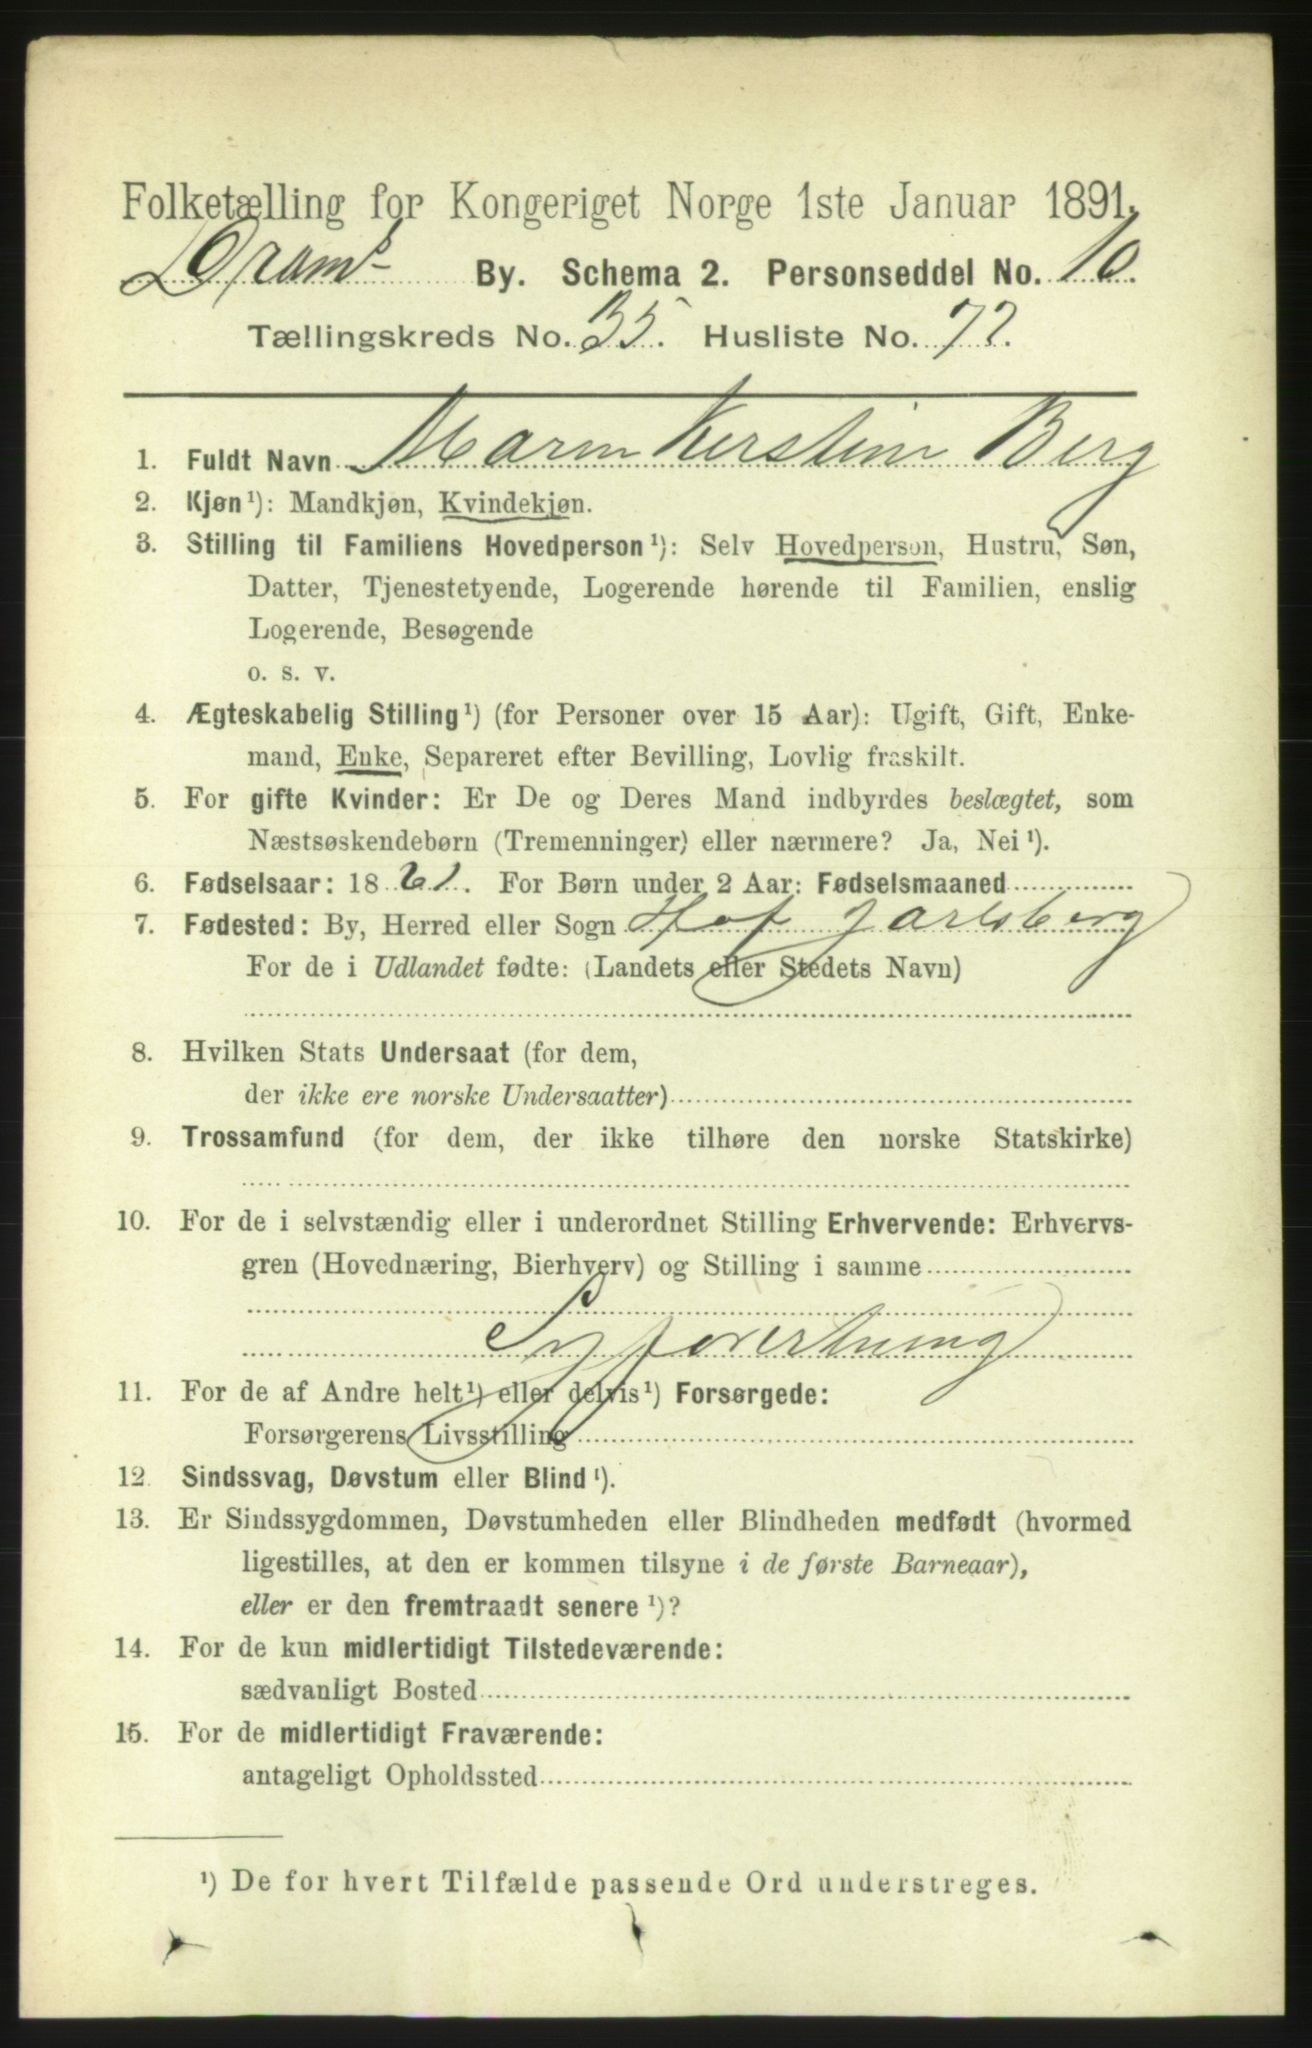 Folketælling for Kongeriget Norge 1ste Januar 1891.
Dram⁠s By. Schema 2. Personseddel No. 10.
Tællingskreds No. 35. Husliste No. 72.
1. Fuldt Navn Maren Kirstine Berg
2. Kjøn ¹): Mandkjøn, Kvindekjøn.
3. Stilling til Familiens Hovedperson ¹): Selv Hovedperson, Hustru, Søn,
Datter, Tjenestetyende, Logerende hørende til Familien, enslig
Logerende, Besøgende
o. s. v.
4. Ægteskabelig Stilling ¹) (for Personer over 15 Aar): Ugift, Gift, Enke-
mand, Enke, Separeret efter Bevilling, Lovlig fraskilt.
5. For gifte Kvinder: Er De og Deres Mand indbyrdes beslægtet, som
Næstsøskendebørn (Tremenninger) eller nærmere? Ja, Nei ¹).
6. Fødselsaar: 1861. For Børn under 2 Aar: Fødselsmaaned
7. Fødested: By, Herred eller Sogn Hof Jarlsberg
For de i Udlandet fødte: (Landets eller Stedets Navn)
8. Hvilken Stats Undersaat (for dem,
der ikke ere norske Undersaatter)
9. Trossamfund (for dem, der ikke tilhøre den norske Statskirke)
10. For de i selvstændig eller i underordnet Stilling Erhvervende: Erhvervs-
gren (Hovednæring, Bierhverv) og Stilling i samme
Syforretning
11. For de af Andre helt ¹) eller delvis ¹) Forsørgede:
Forsørgerens Livsstilling
12. Sindssvag, Døvstum eller Blind ¹).
13. Er Sindssygdommen, Døvstumheden eller Blindheden medfødt (hvormed
ligestilles, at den er kommen tilsyne i de første Barneaar),
eller er den fremtraadt senere ¹)?
14. For de kun midlertidigt Tilstedeværende:
sædvanligt Bosted
15. For de midlertidigt Fraværende:
antageligt Opholdssted
¹) De for hvert Tilfælde passende Ord understreges.